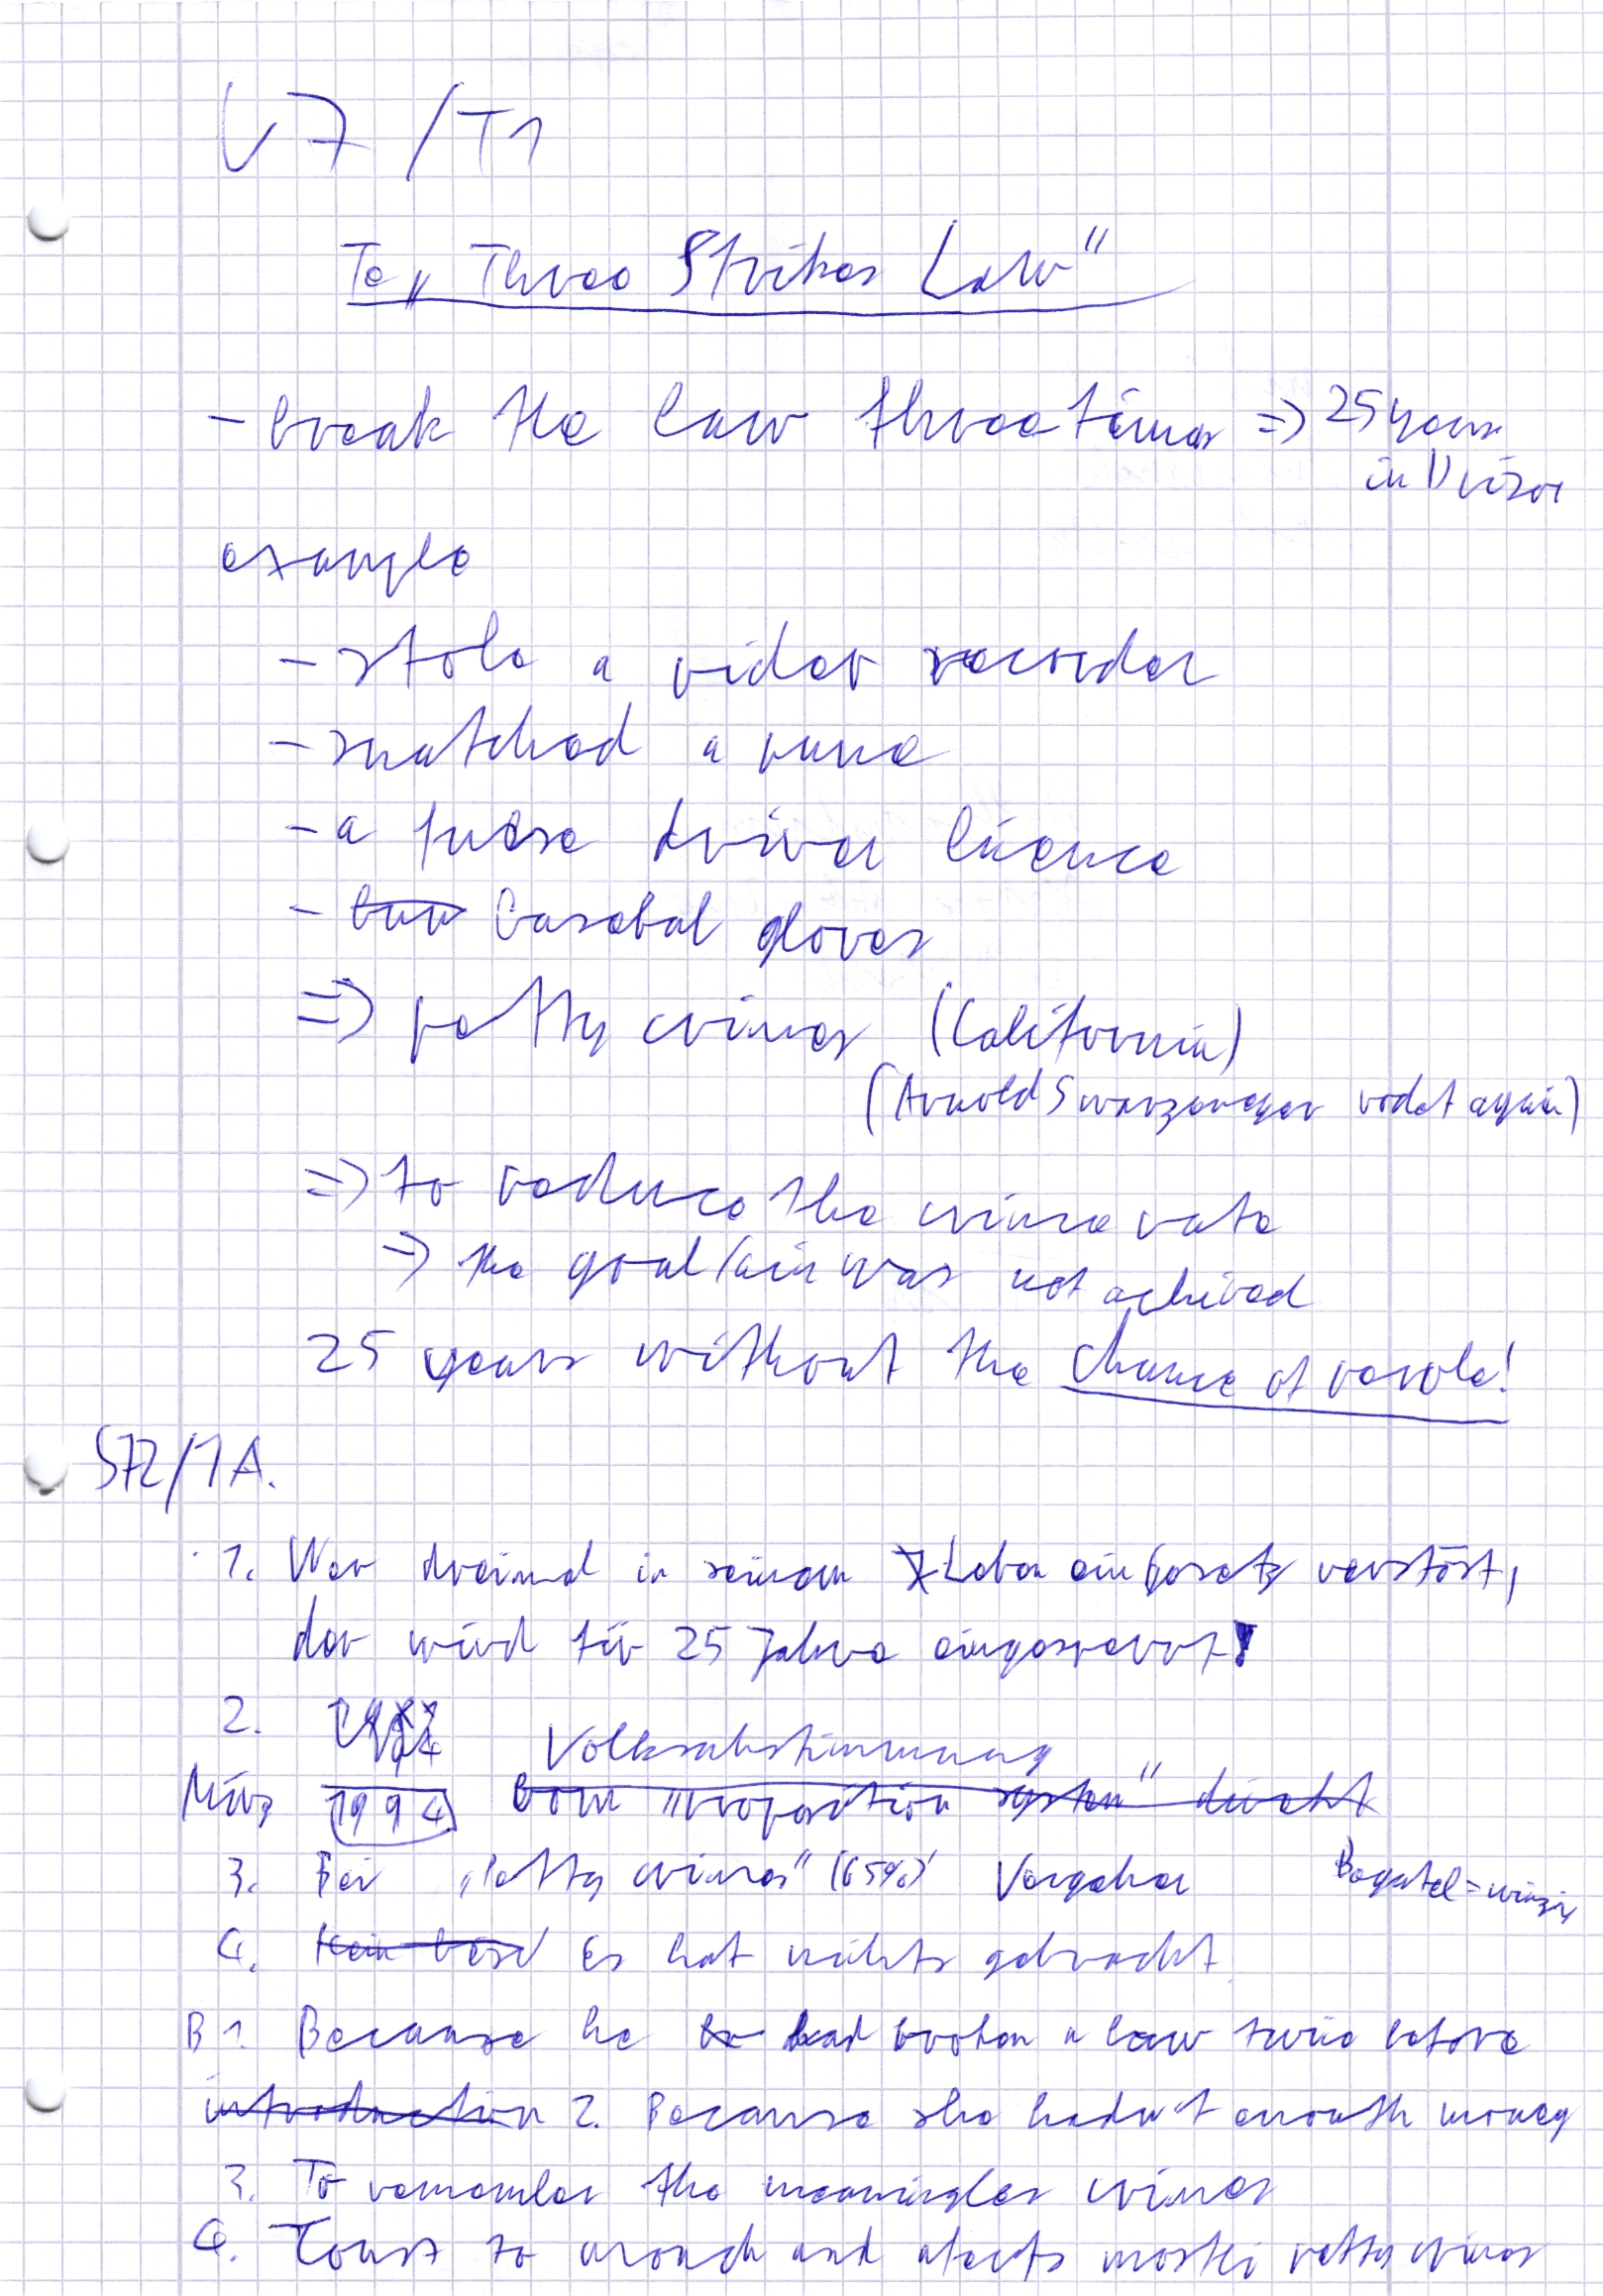 U7/T1
Te „Three Strikes Law"
- break the law three times => 25 years
in prison
example
- stole a video recorder
- snatched a purse
- a false driver licence
- basebal gloves
=> petty crimes (California)
(Arnold Swarzeneger again)
=> to reduce the crime rate
=> the goal/aim was not achived
25 years without the chance of parole!
S72/1A.
1. Wer dreimal in seinem Leben ein Gesetz verstöst,
der wird für 25 Jahre eingesperrt!
2.
Volksabstimmung
März 1994 vom „proposition system" direkt
3. Bei „Petty crimes" (65%) Vergehen Bagatel = winzig
4. Es hat nichts gebracht.
B 1. Because he had broken a law twice before
introduction 2. Because she hadn't enouth money
3. To remember the meaningles crimes
4. to and mostli petty crimes